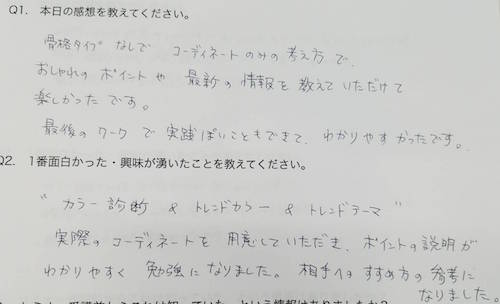 Q1. 本日の感想を教えてください。
骨格タイプなしで コーディネートのみの考え方で、
おしゃれのポイントや最新の情報を教えていただけて
楽しかったです。
最後のワークで実践ぽいこともできて、わかりやすかったです。
Q2. 1番面白かった・興味が湧いたことを教えてください。
"カラー診断 & トレンドカラー & トレンドテーマ"
実際のコーディネートを用意していただき、ポイントの説明が
わかりやすく勉強になりました。相手へのすすめ方の参考に
なりました。